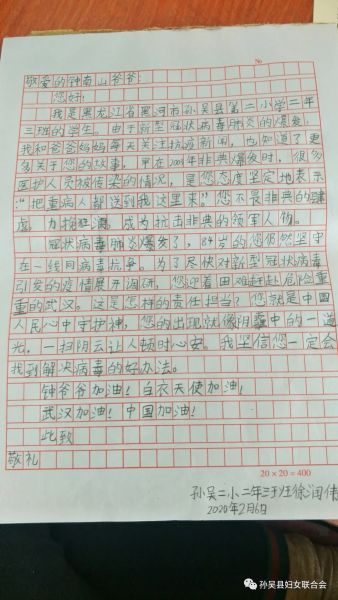 敬爱的钟南山爷爷:
您好!
我是黑龙江省黑河市孙吴县第二小学二年
三班的学生。由于新型冠状病毒肺炎的爆发,
我和爸爸妈妈每天关注抗疫新闻,也知道了更
多关于您的故事,早在2003年非典爆发时,很多
医护人员被传染的情况,是您态度坚定地表示
“把重病人都送到我这里来”您不畏非典的肆
虐,力挽狂澜,成为抗击非典的领军人物。
冠状病毒肺炎爆发了,84岁的您仍然坚守
在一线同病毒抗争。为了尽快对新型冠状病毒
引发的疫情展开调研,您迎着困难赶赴危险重
重的武汉。这是怎样的责任担当?您就是中国
人民心中守护神,您的出现就像阴霾中的一道
光,一扫阴云让人顿时心安。我坚信您一定会
找到解决病毒的好办法。
钟爷爷加油!白衣天使加油!
武汉加油!中国加油!
此致
敬礼
20×20=400
孙吴二小二年三班徐润伟
2020年2月6日
孙吴县妇女联合会